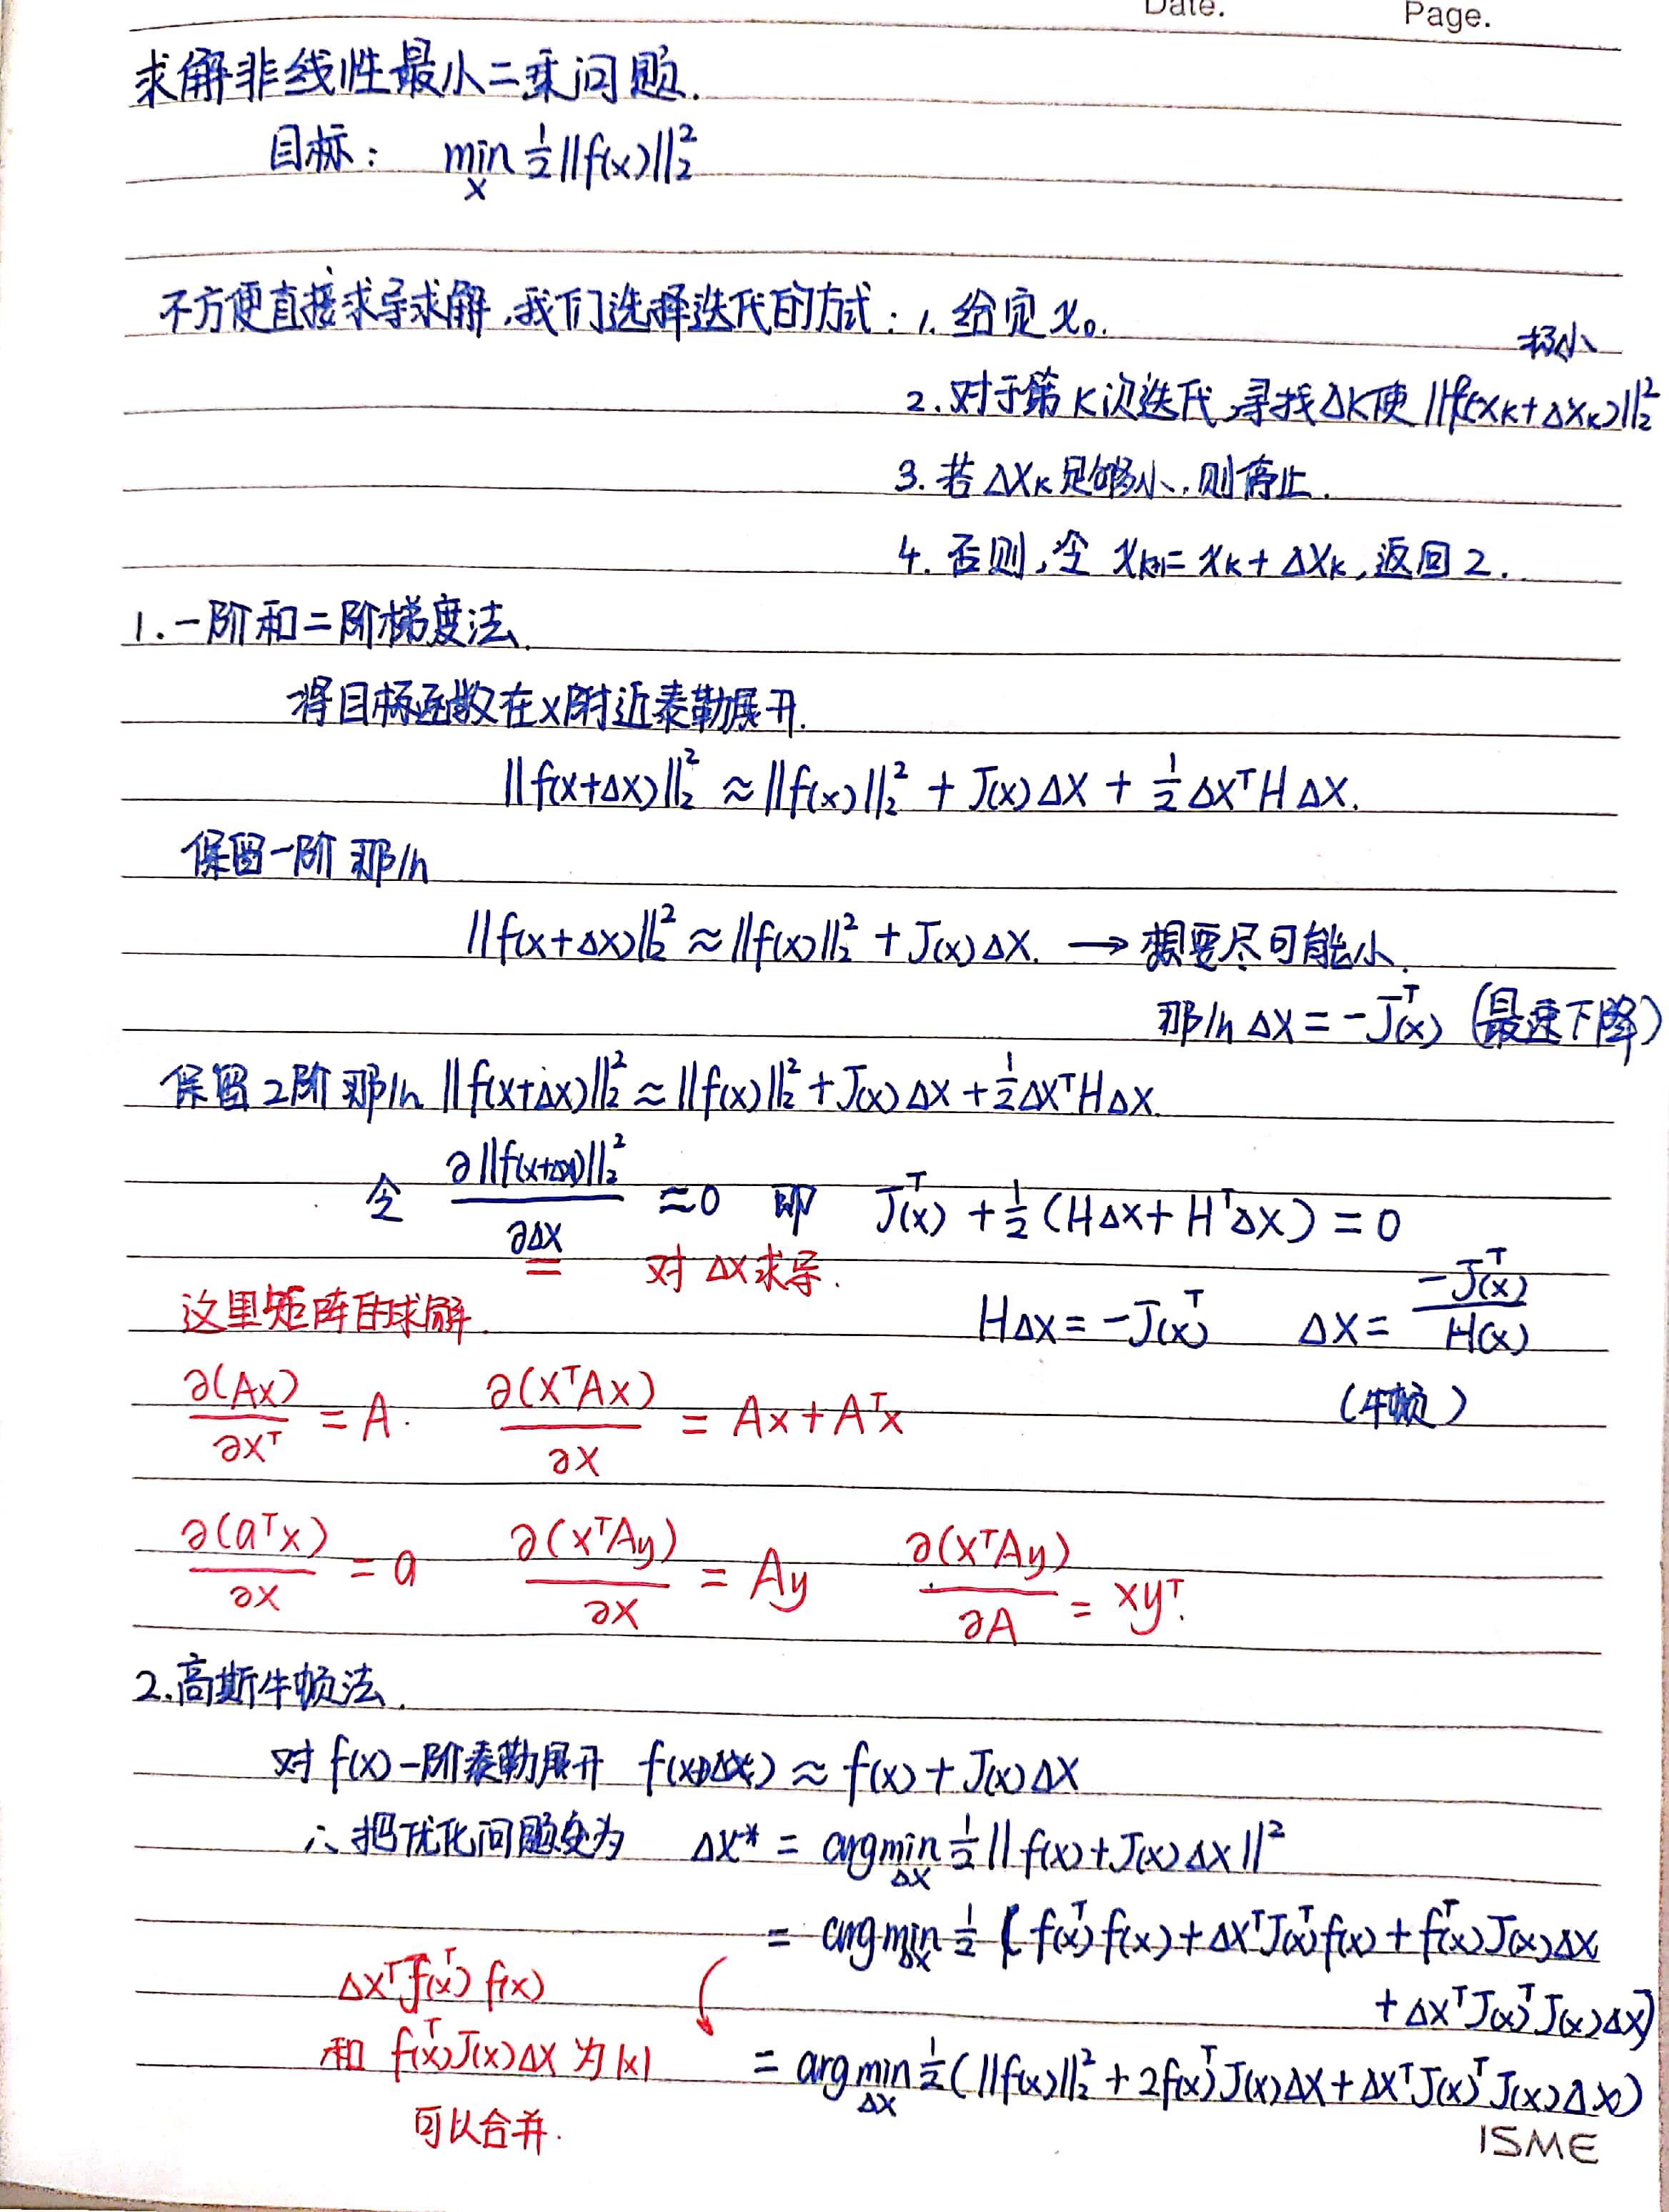 Date. Page.
求解非线性最小二乘问题.
目标: min_x ½||f(x)||₂²
不方便直接求导求解,我们选择迭代的方式: 1. 给定 x₀.
2. 对于第K次迭代,寻找ΔK使 ||f(x_K+Δx_K)||₂² 极小
3. 若 Δx_K 足够小,则停止.
4. 否则,令 x_{k+1} = x_K + Δx_K, 返回2.
1. 一阶和二阶梯度法.
将目标函数在x附近泰勒展开.
||f(x+Δx)||₂² ≈ ||f(x)||₂² + J(x)Δx + ½Δxᵀ H Δx.
保留一阶 那么
||f(x+Δx)||₂² ≈ ||f(x)||₂² + J(x)Δx. → 想要尽可能小.
那么 Δx = -J(x)ᵀ (最速下降)
保留2阶 那么 ||f(x+Δx)||₂² ≈ ||f(x)||₂² + J(x)Δx + ½ΔxᵀHΔx.
令 ∂||f(x+Δx)||₂² / ∂Δx ≈ 0 即 J(x)ᵀ + ½(HΔx + HᵀΔx) = 0
对 Δx 求导.
这里矩阵的求解.
HΔx = -J(x)ᵀ Δx = -J(x)ᵀ / H(x)
(牛顿)
∂(Ax)/∂xᵀ = A. ∂(xᵀAx)/∂x = Ax + Aᵀx
∂(aᵀx)/∂x = a ∂(xᵀAy)/∂x = Ay ∂(xᵀAy)/∂A = xyᵀ.
2. 高斯牛顿法.
对 f(x) 一阶泰勒展开 f(x+Δx) ≈ f(x) + J(x)Δx
∴ 把优化问题变为 Δx* = argmin_Δx ½|| f(x) + J(x)Δx ||²
= argmin_Δx ½ ( f(x)ᵀf(x) + ΔxᵀJ(x)ᵀf(x) + f(x)ᵀJ(x)Δx
+ ΔxᵀJ(x)ᵀJ(x)Δx)
ΔxᵀJ(x)ᵀ f(x)
和 f(x)ᵀJ(x)Δx 为 1×1
可以合并.
= argmin_Δx ½( ||f(x)||₂² + 2f(x)ᵀJ(x)Δx + ΔxᵀJ(x)ᵀJ(x)Δx)
ISME